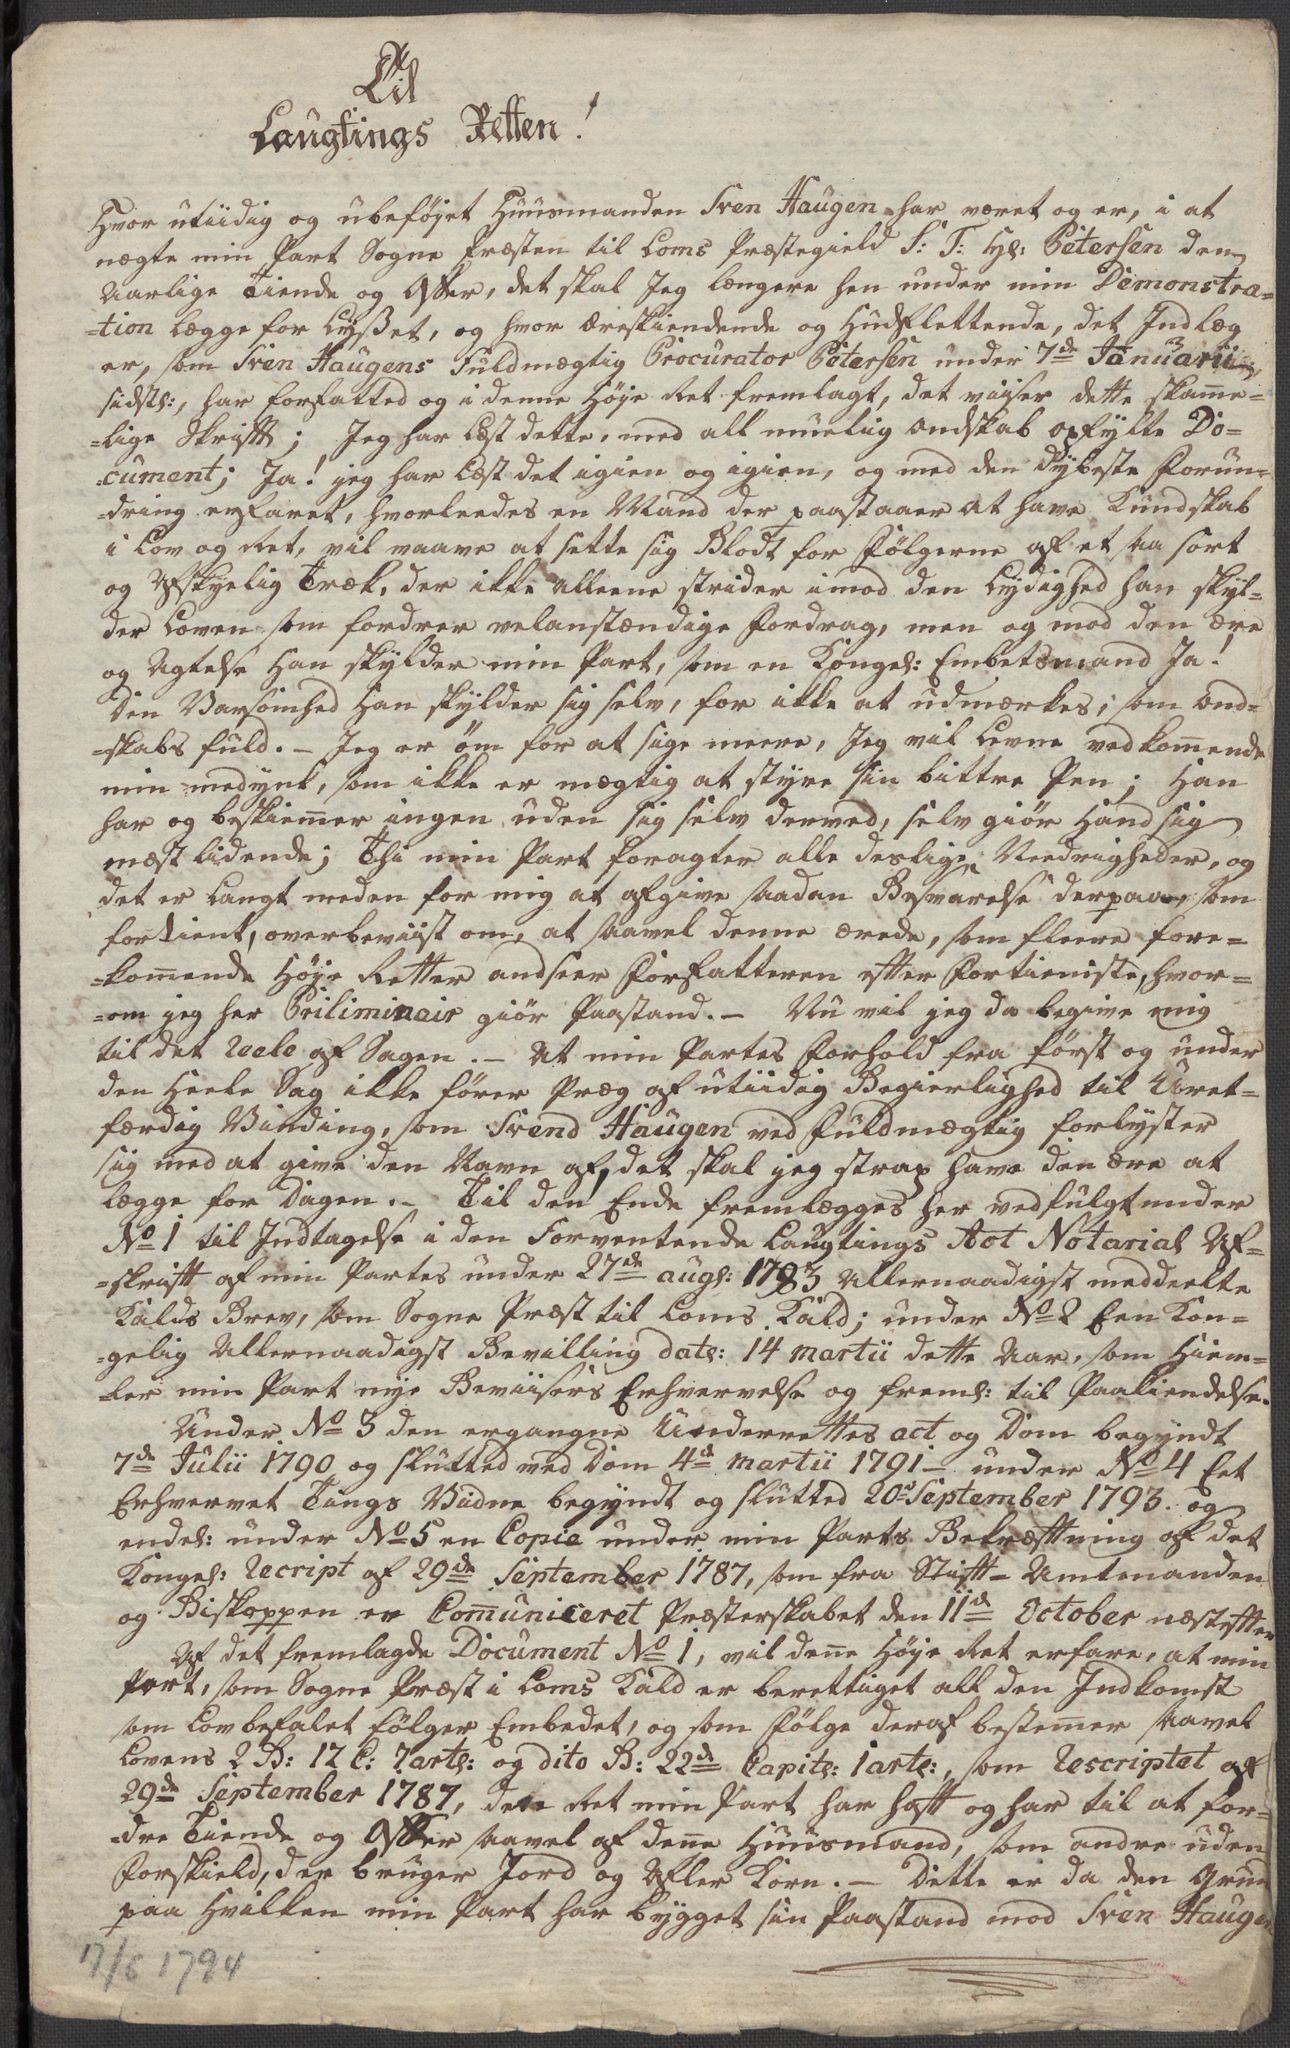 Til
Laugtings Retten!
Hvor utiidig og ubeføjet Huusmanden Sven Haugen har været og er, i at
nægte min Part Sogne Præsten til Loms Præstegield S: T: Hr: Petersen den
Aarlige Tiende og Offer, det skal Jeg længere hen under min Demonstra=
=tion lægge for Lyset, og hvor æreskiendende og Hudflettende, det Indlæg
er, som Sven Haugens Fuldmægtig Procurator Petersen under 7de Januarii
sidstl:, har forfatted og i denne Høje Ret fremlagt, det viiser dette skam̄e=
=lige Skrifft; Jeg har Læst dette, med all muelig ondskab opfylte Do=
=cument; Ja! jeg har Læst det igien og igien, og med den dybeste Forun=
=dring erfaret, hvorleedes en Mand der paastaaer at have Kundskab
i Lov og Ret, vil vaave at sette sig Blodt for Følgerne af et saa sort
og Afskyelig Træk, der ikke alleene strider imod den Lydighed han skyl=
der Loven som fordrer velanstændige Fordrag, men og mod den ære
og Agtelse Han skylder min Part, som en Kongel: Embetsmand Ja!
den Varsomhed Han skylder sig selv, for ikke at udmærkes, som ond=
=skabs fuld. – Jeg er øm for at sige meere, Jeg vil Levne vedkom̄ende
min medynk, som ikke er mægtig at styre sin bittre Pen; Han
har og beskiem̄er ingen uden sig selv derved, selv giør Hand sig
mæst lidende; Thi min Part foragter alle deslige Needrigheder, og
det er Langt neden for mig at afgive saadan Besvarelse derpaa, som
fortient, overbeviist om, at saavel denne ærede, som fleere fore=
=kom̄ende Høje Retter andseer Forfatteren efter Fortieniste, hvor=
=om jeg her Priliminair giør Paastand. – Nu vil jeg da begive mig
til det reele af Sagen. – At min Partes Forhold fra først og under
den Heele Sag ikke fører Præg af utiidig Begierlighed til Uret=
færdig Vinding, som Svend Haugen ved Fuldmægtig forlyster
sig med at give den Navn af, det skal jeg strax have den ære at
lægge for dagen. – Til den Ende fremlægges her vedfulgt under
No 1 til Indtagelse i den Forventende Laugtings Act Notarial Af=
=skrifft af min Partes under 27de augl: 1783 Allernaadigst meddeelte
Kalds Brev, som Sogne Præst til Loms Kald; under No 2 Een Kon=
=gelig Allernaadigst Bevilling datl: 14 martii dette Aar, som Hiem=
=ler min Part nye Beviisers Erhvervelse og freml: til Paakiendelse.
Under No 3 den ergangne Underrettes act og Dom begyndt
7de Julii 1790 og slutted ved Dom 4de martii 1791 – under No 4 Eet
Erhvervet Tings Vidne begyndt og slutted 20de September 1793. og
endel: under No 5 en Copie under min Parts Bekræfftning af det
Kongel: Recript af 29de September 1787, som fra Stifft-Amtmanden
og Biskoppen er Com̄uniceret Præsterskabet den 11te October næstefter
Af det fremlagde Document No 1, vil den̄e Høje Ret erfare, at min
Part, som Sogne Præst i Loms Kald er berettiget all den Indkomst
som Lov befalet følger Embedet, og som Følge deraf bestem̄er saavel
Lovens 2 B: 12 C: 7 artl: og dito B: 22de Capitl: 1 artl:, som Rescriptet af
29de September 1787, den Ret min Part har hafft og har til at for=
=dre Tiende og Offer saavel af den̄e Huusmand, som andre uden
Forskield, der bruger Jord og Afler Korn. – Dette er da den Grund
paa Hvilken min Part har bygget sin Paastand mod Sven Haugen
17/6 1794